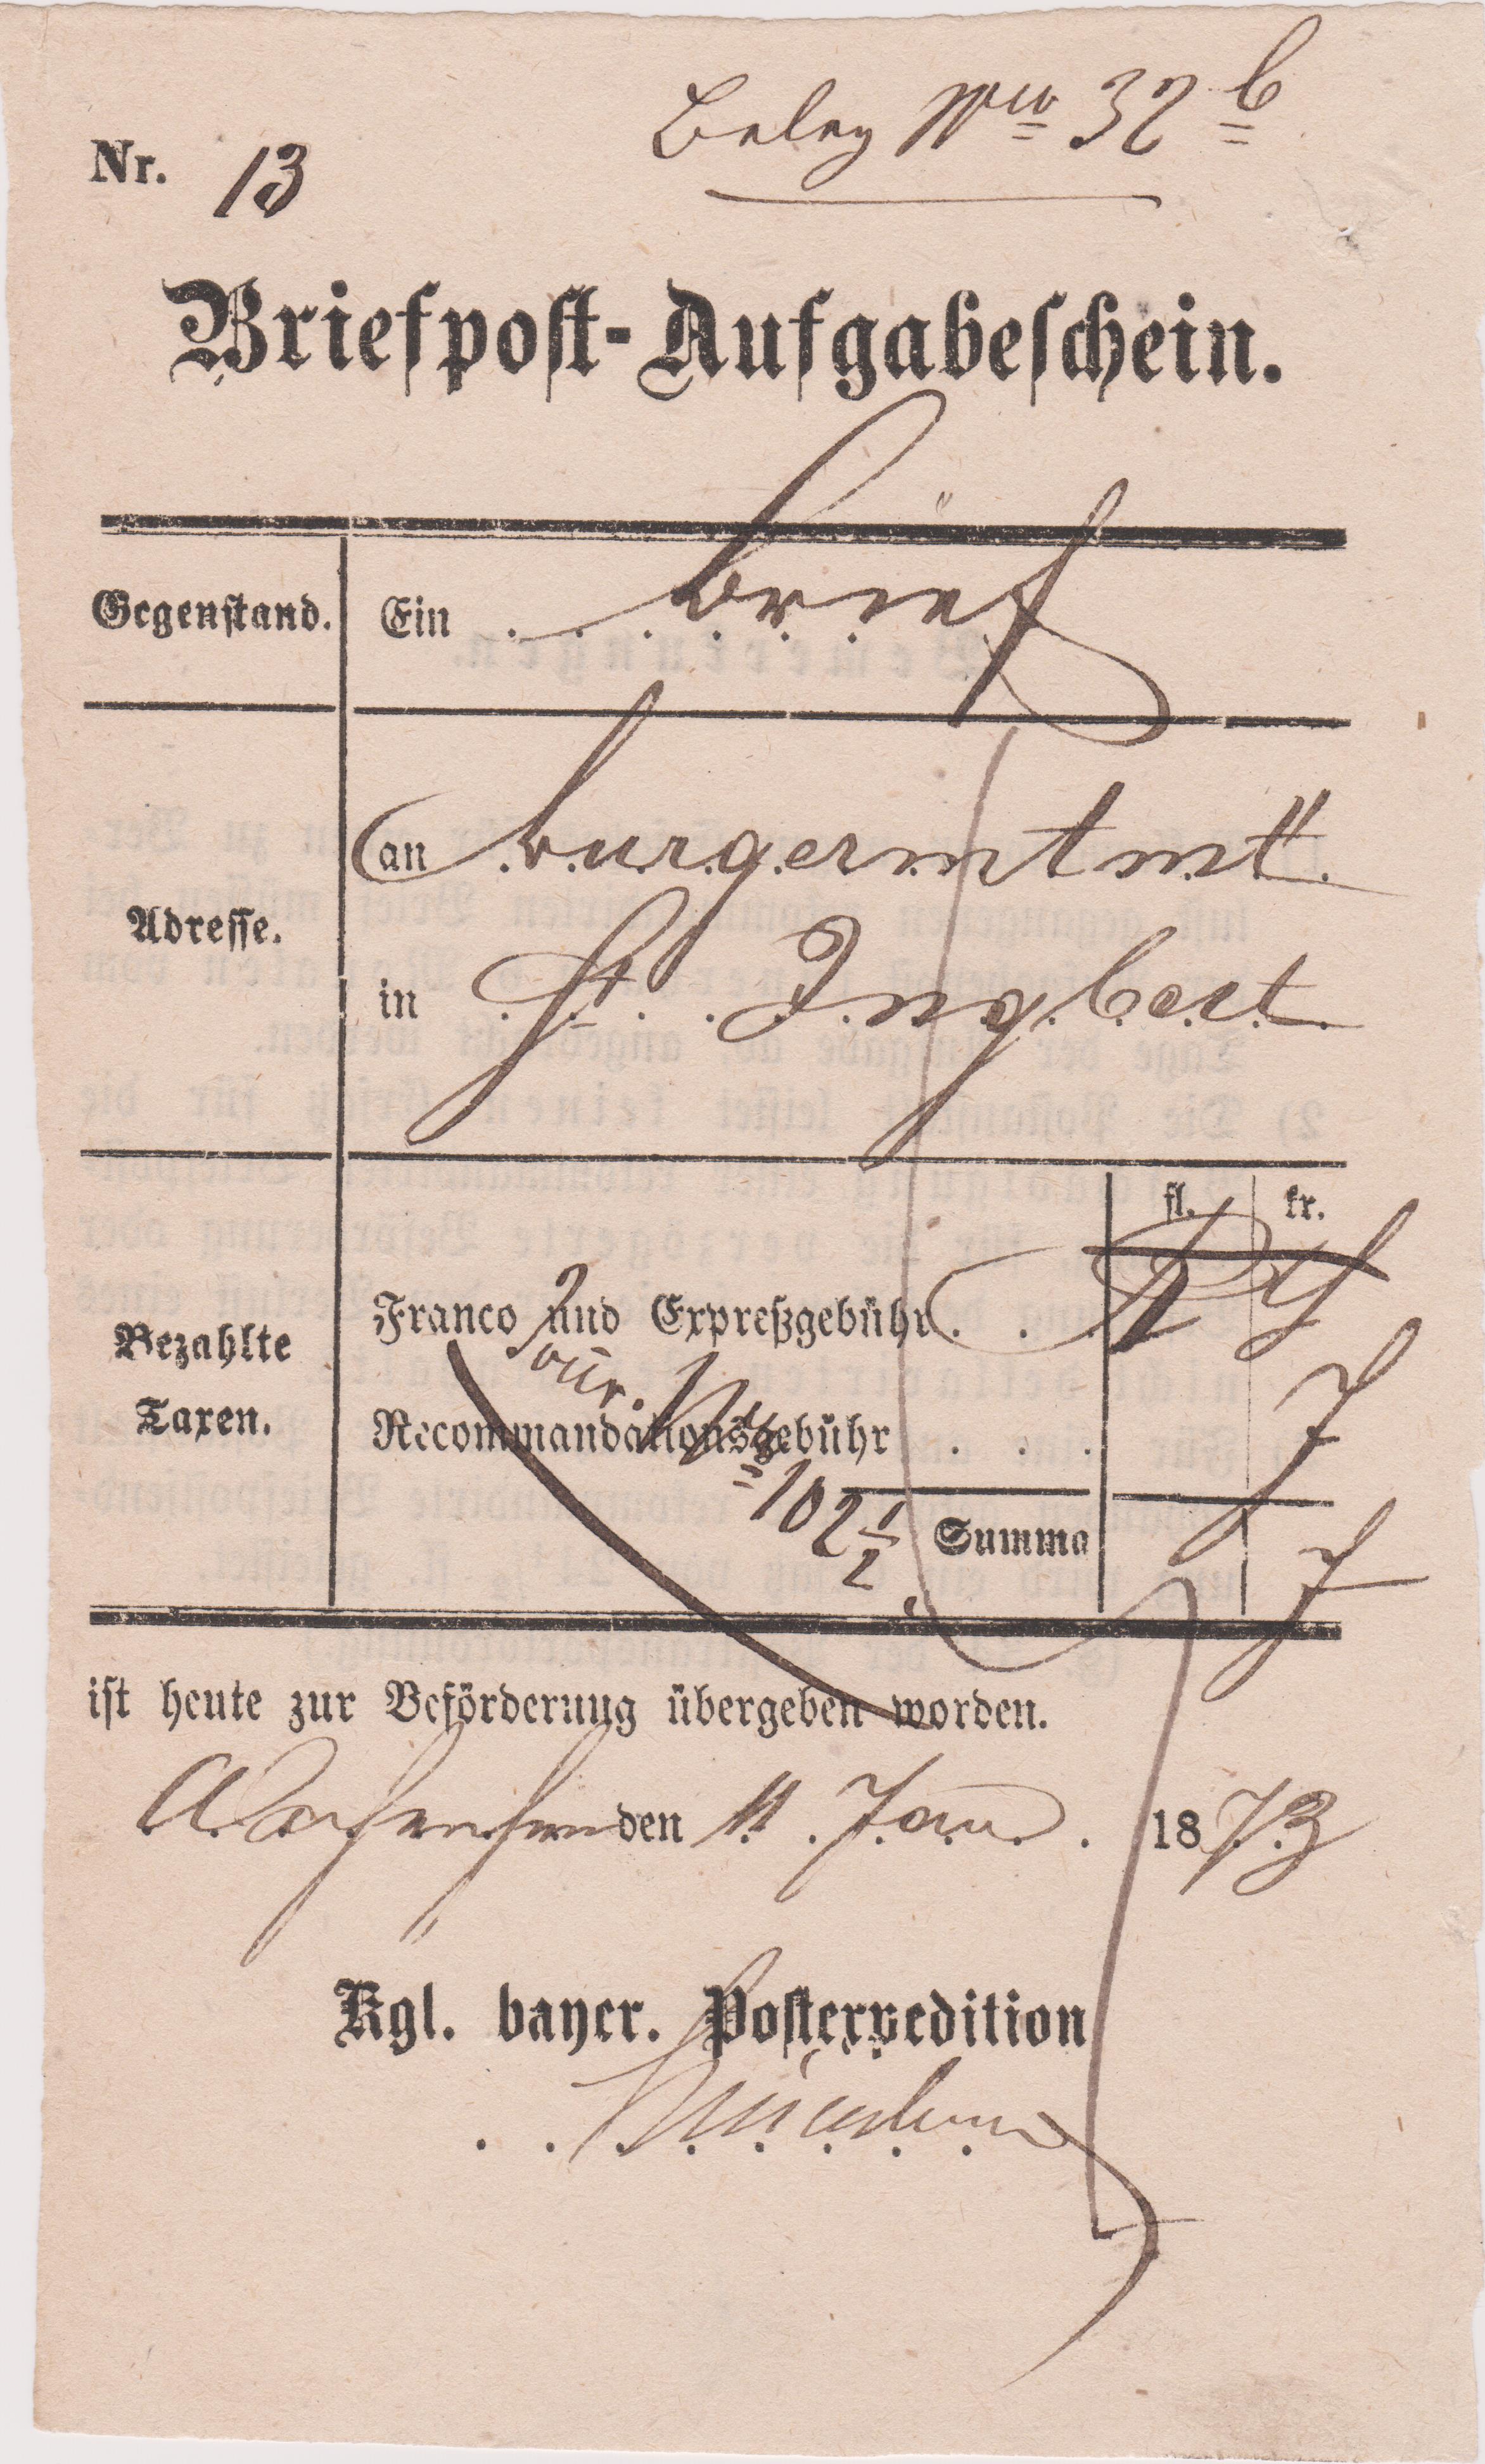 Beleg Nro 32 b
Nr. 13
Briefpost-Aufgabeschein.
Gegenstand. Ein Brief
Adresse. an Burgermtamt
in St. Ingbert
fl. kr.
Bezahlte Taxen. Franco und Expreßgebühr
Recommandationsgebühr 7
102 1/2
Summa 7
ist heute zur Beförderung übergeben worden.
den 11. Jan. 1873
Kgl. bayer. Postexpedition